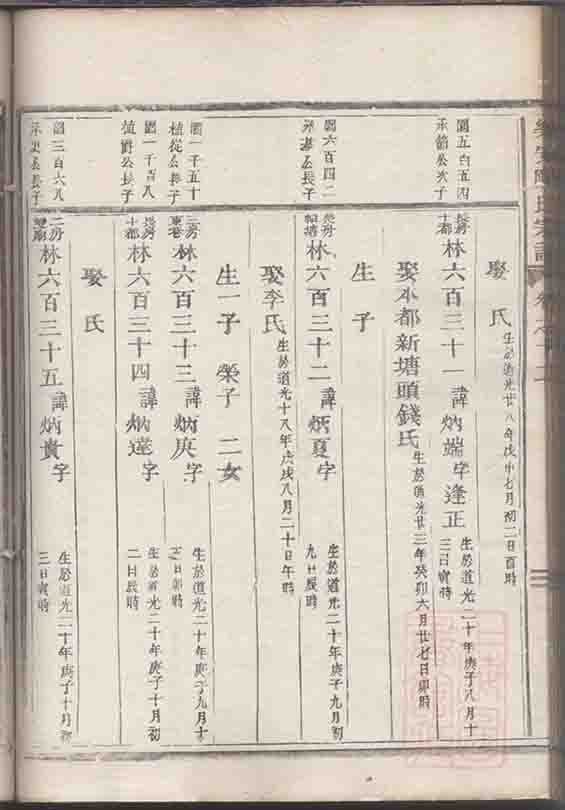 卷之十二
三
娶 氏 生於道光廿八年戊申七月初二日酉時
國五百五四
承韶公次子
長房
十都
林六百三十一 諱炳端字逢正 生於道光二十年庚子八月十
三日寅時
娶本都新塘頭錢氏 生於道光廿三年癸卯六月廿七日卯時
生 子
國六百四二
公長子
長房
林六百三十二 諱炳夏字 生於道光二十年庚子九月初
九日辰時
娶李氏 生於道光十八年戊戌八月二十日午時
生一子 榮子 二女
國一千五十
植從公長子
三房
東巷
林六百三十三 諱炳庚字 生於道光二十年庚子九月十
日卯時
國一千百八
植爵公長子
長房
十都
林六百三十四 諱炳蓮字 生於道光二十年庚子十月初
二日辰時
娶 氏
國三百六八
公長子
二房
林六百三十五 諱炳貴字 生於道光二十年庚子十月初
三日寅時